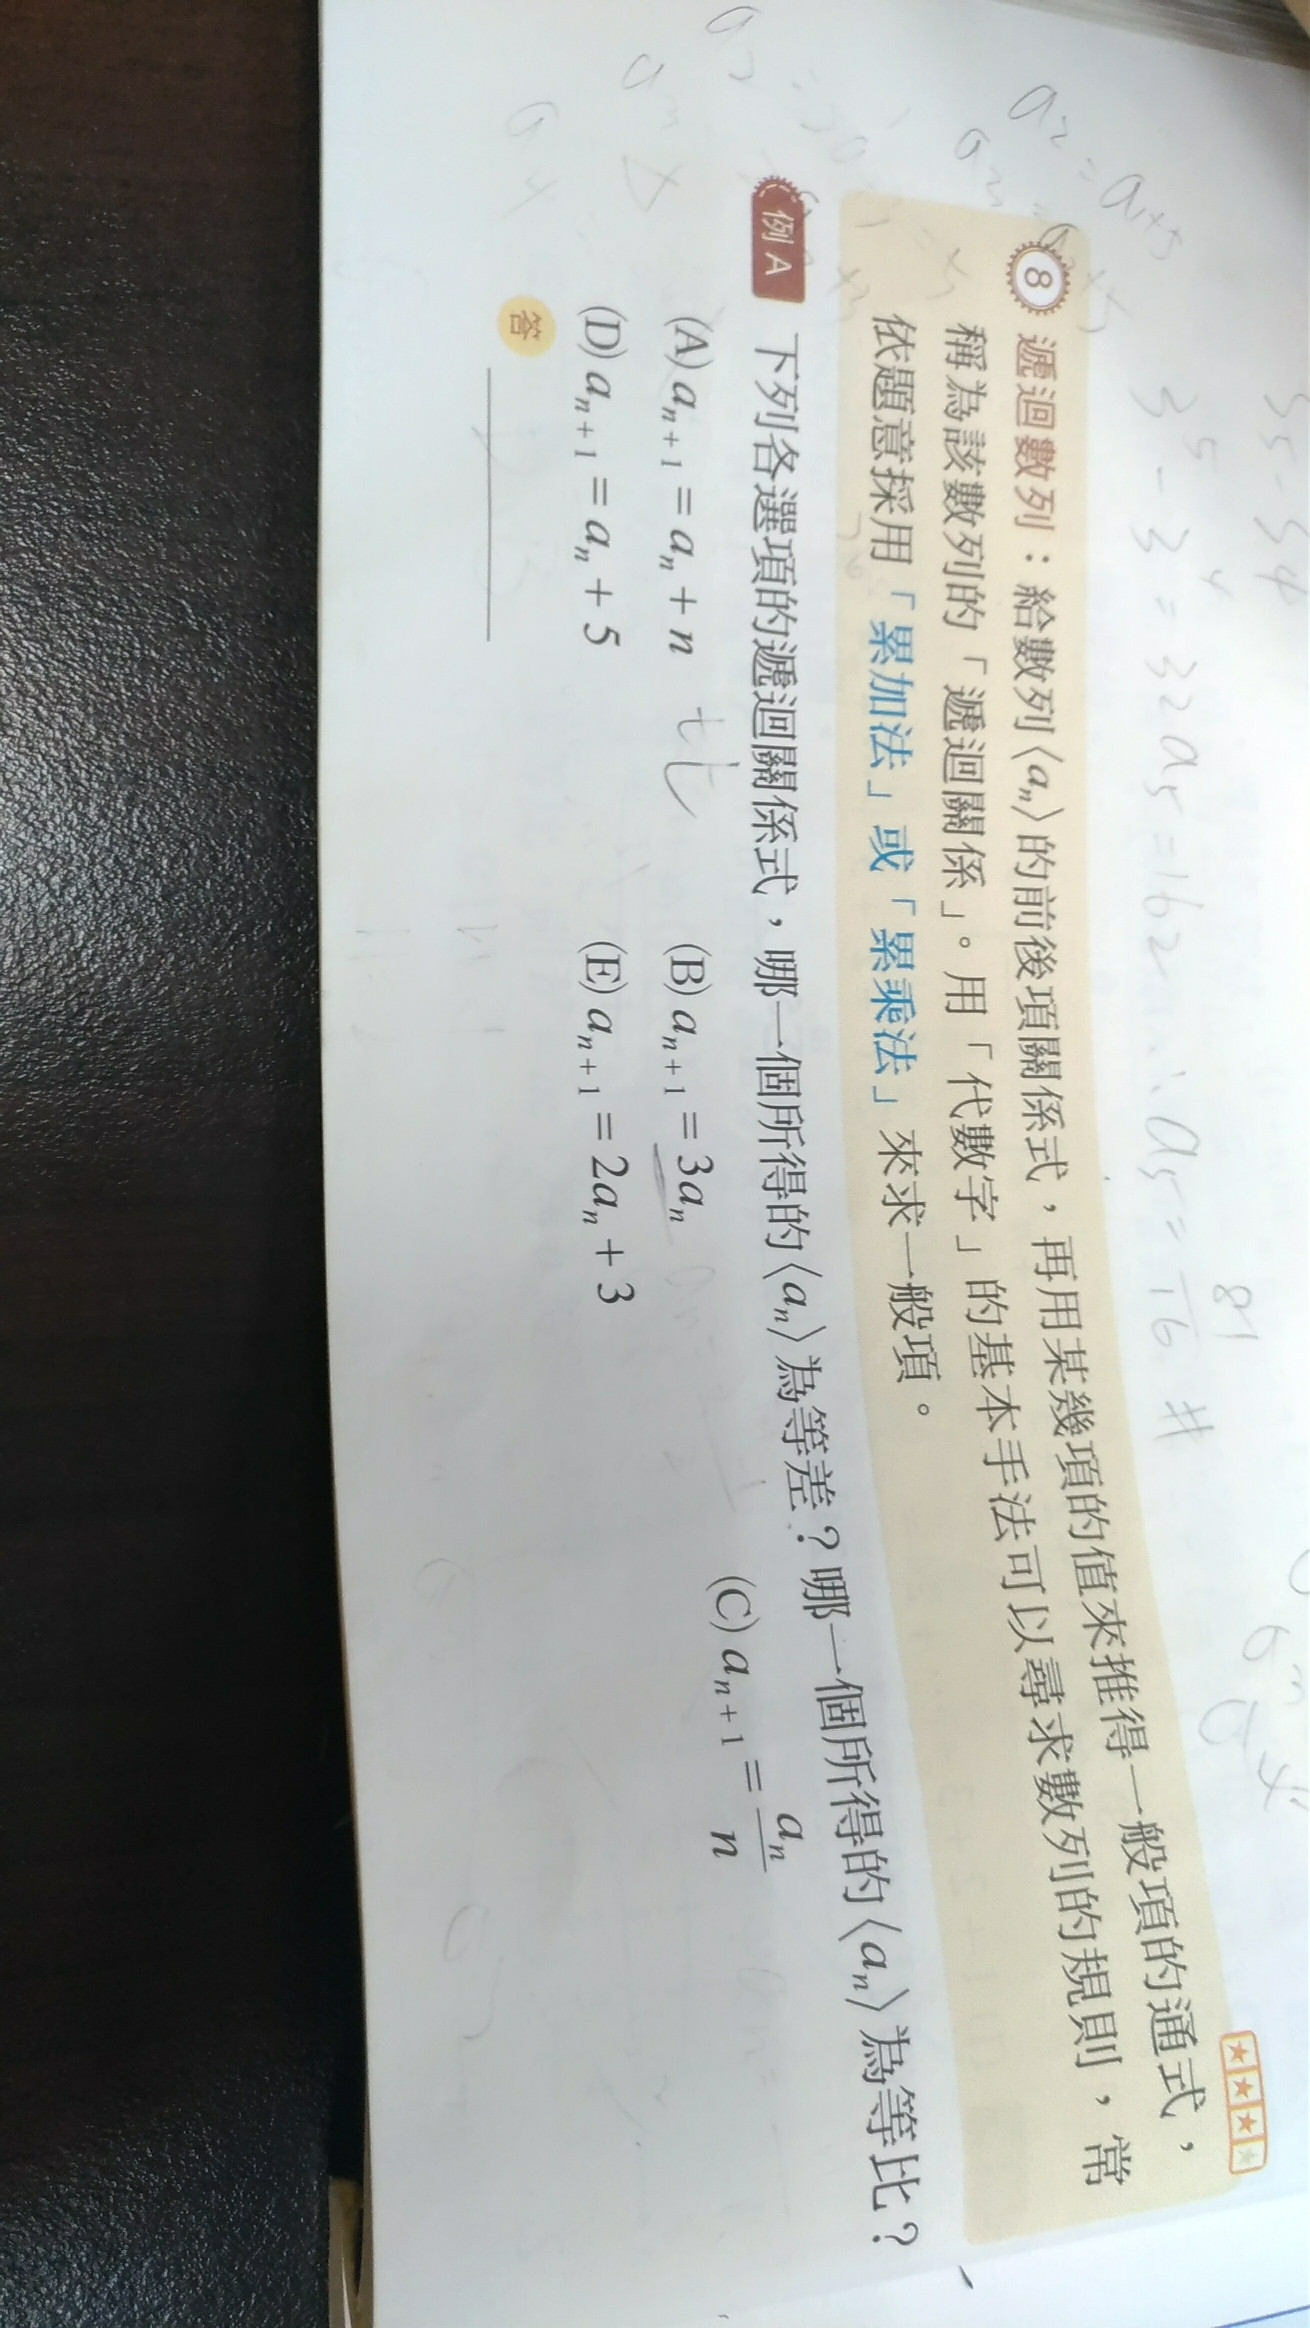 3⁵-3⁴=32a₅=162∴a₅=81/16 #
8 遞迴數列：給數列⟨aₙ⟩的前後項關係式，再用某幾項的值來推得一般項的通式，
稱為該數列的「遞迴關係」。用「代數字」的基本手法可以尋求數列的規則，常
依題意採用「累加法」或「累乘法」來求一般項。
例A 下列各選項的遞迴關係式，哪一個所得的⟨aₙ⟩為等差？哪一個所得的⟨aₙ⟩為等比？
(A) aₙ₊₁=aₙ+n (B) aₙ₊₁=3aₙ (C) aₙ₊₁=aₙ/n
(D) aₙ₊₁=aₙ+5 (E) aₙ₊₁=2aₙ+3
答